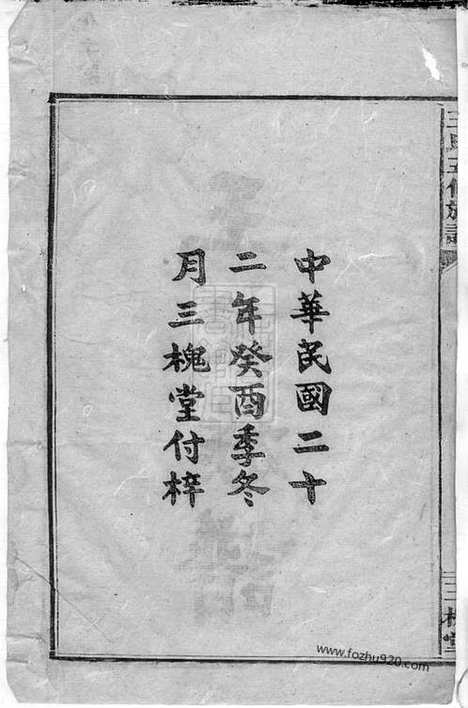 中華民國二十
二年癸酉季冬
月三槐堂付梓
三槐堂
www.fozhu920.com